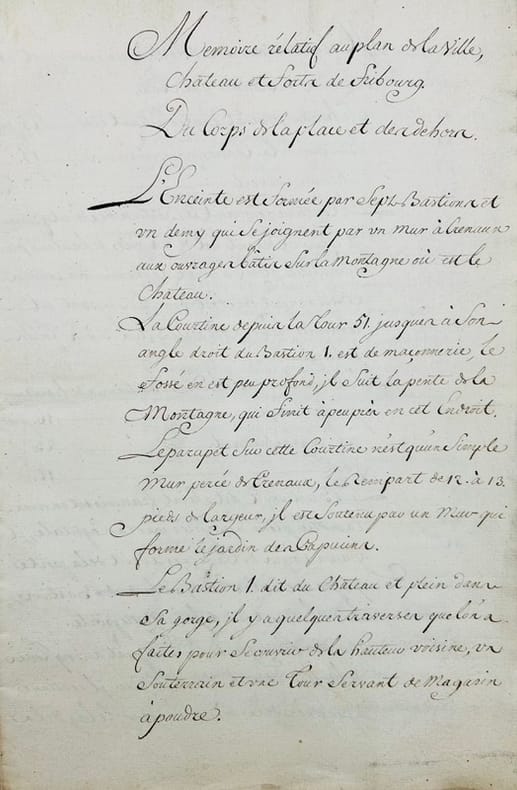 Memoire rélatif au plan de la Ville,
Château et Forts de Fribourg.
Du Corps de la place et des dehors.
L'Enceinte est formée par Sept Bastions et
un demy qui se joignent par un mur à Crenaux
aux ouvrages bâtis sur la Montagne où est le
Château.
La Courtine depuis la Tour 51. jusques à son
angle droit du Bastion 1. est de maçonnerie, le
fossé en est peu profond, il suit la pente de la
Montagne, qui finit à peu près en cet Endroit.
Le parapet sur cette Courtine n'est qu'un simple
Mur percé de Crenaux, le Rempart de 12. à 13.
pieds de largeur, il est soutenu par un Mur qui
forme le jardin des Capucins.
Le Bastion 1. dit du Château est plein dans
sa gorge, il y a quelques traverses que l'on a
faites pour se couvrir de la hauteur voisine, un
souterrain et une Tour servant de Magasin
à poudre.